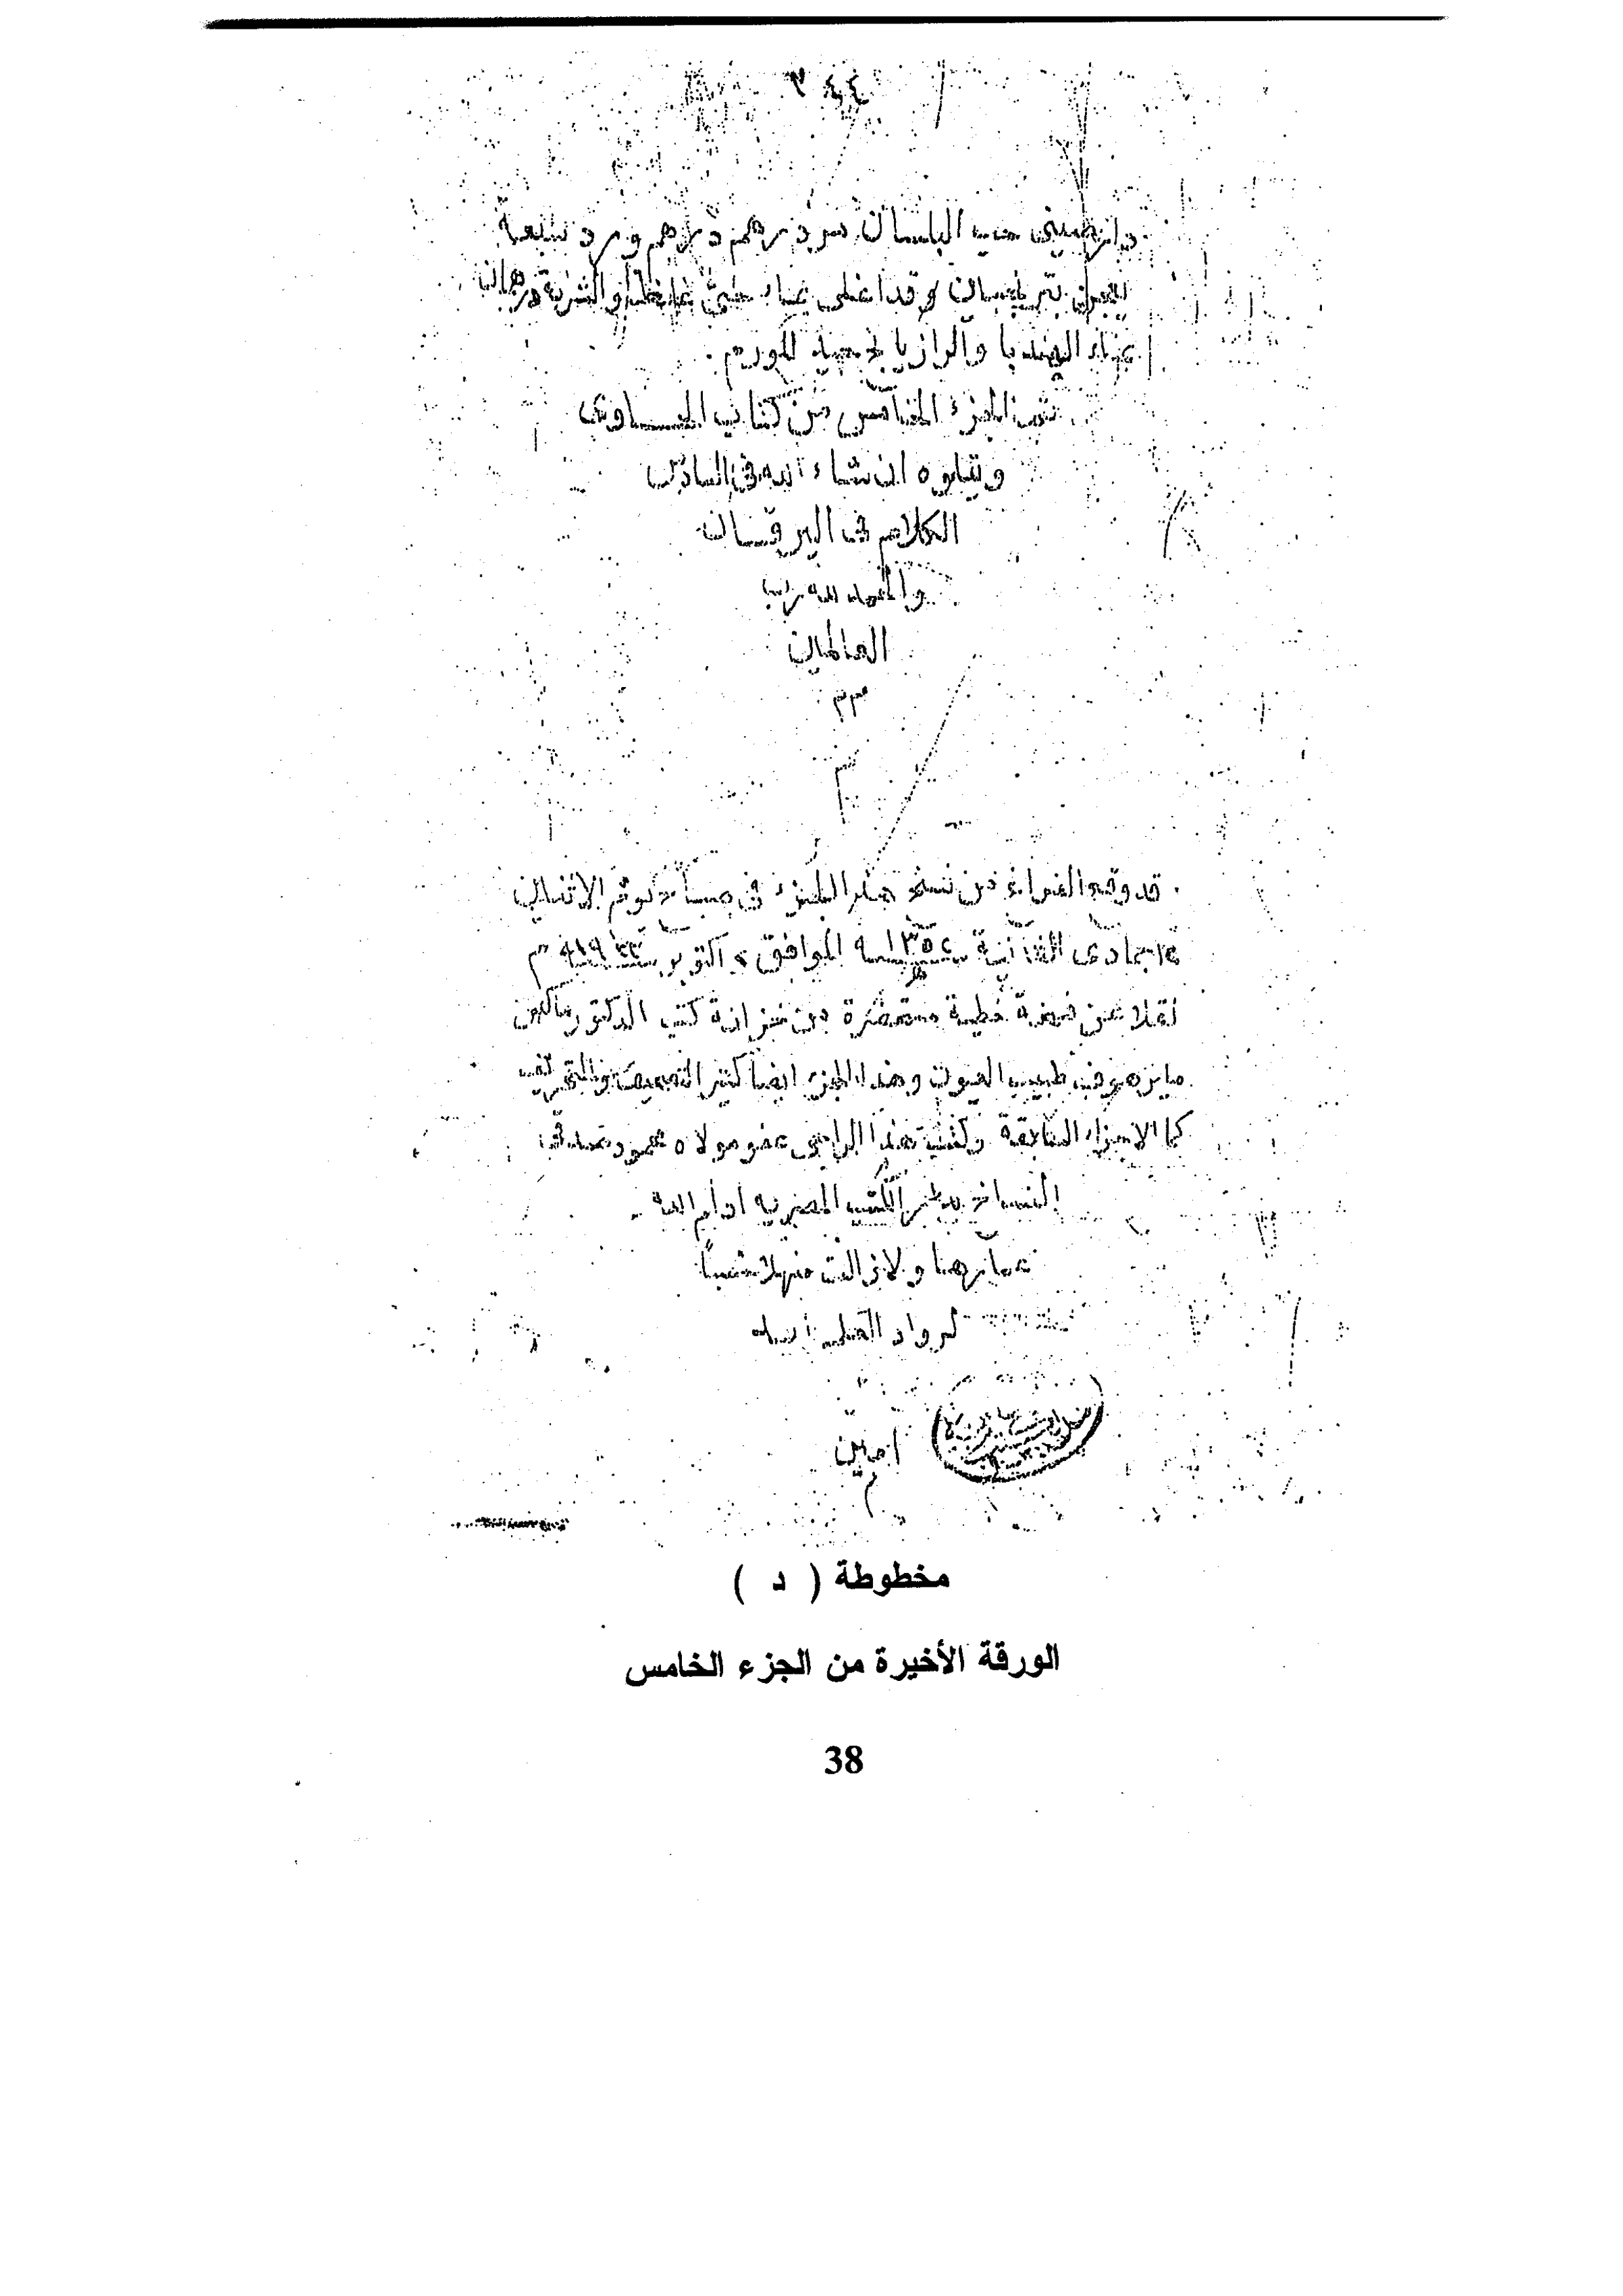 ٢٤٤
دارصينى حب البلسان من درهم درهم ورد سبعة
يعجن بترنجبين وقد اغلى بماء حتى والشربة درهمان
بماء الهندبا والرازيانج جيد للورم
تم الجزء الخامس من كتاب الحاوى
ويتلوه ان شاء الله فى السادس
الكلام فى اليرقان
والحمد لله رب
العالمين
قد وقع الفراغ من نسخ هذا الجزء فى صباح يوم الاثنين
جمادى الثانية سنة ١٣٥٢ الموافق اكتوبر سنة ١٩٣٣ م
نقلا عن نسخة خطية مستحضرة من خزانة كتب الدكتور ماكس
مايرهوف طبيب العيون وهذا الجزء ايضا كثير التصحيف والتحريف
كالاجزاء السابقة وكتب هذا الراجى عفو مولاه محمود صدقى
النساخ بدار الكتب المصريه ادام الله
عمارها ولا زالت منهلا عذبا
لرواد العلم
امين
مخطوطة ( د )
الورقة الأخيرة من الجزء الخامس
38